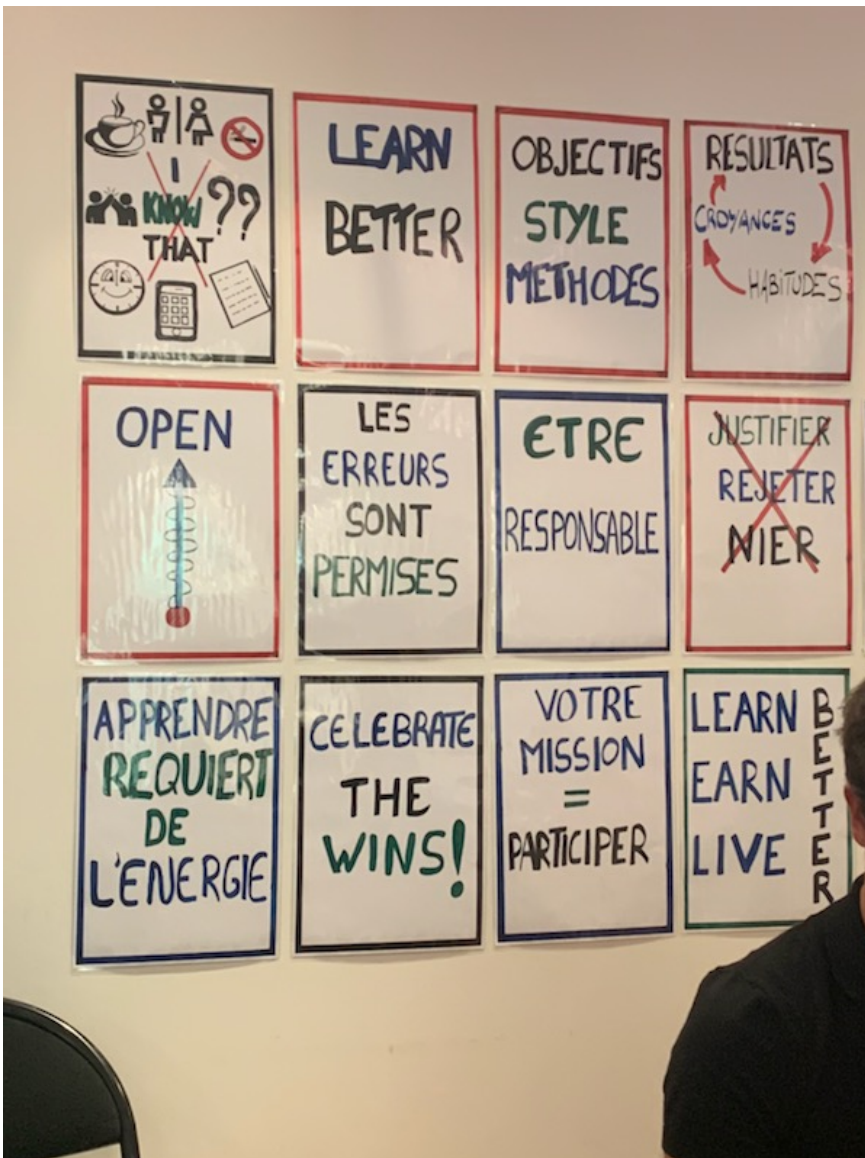 I
KNOW ??
THAT
LEARN
BETTER
OBJECTIFS
STYLE
METHODES
RESULTATS
CROYANCES
HABITUDES
OPEN
LES
ERREURS
SONT
PERMISES
ETRE
RESPONSABLE
JUSTIFIER
REJETER
NIER
APPRENDRE
REQUIERT
DE
L'ENERGIE
CELEBRATE
THE
WINS!
VOTRE
MISSION
=
PARTICIPER
LEARN
EARN
LIVE
BETTER